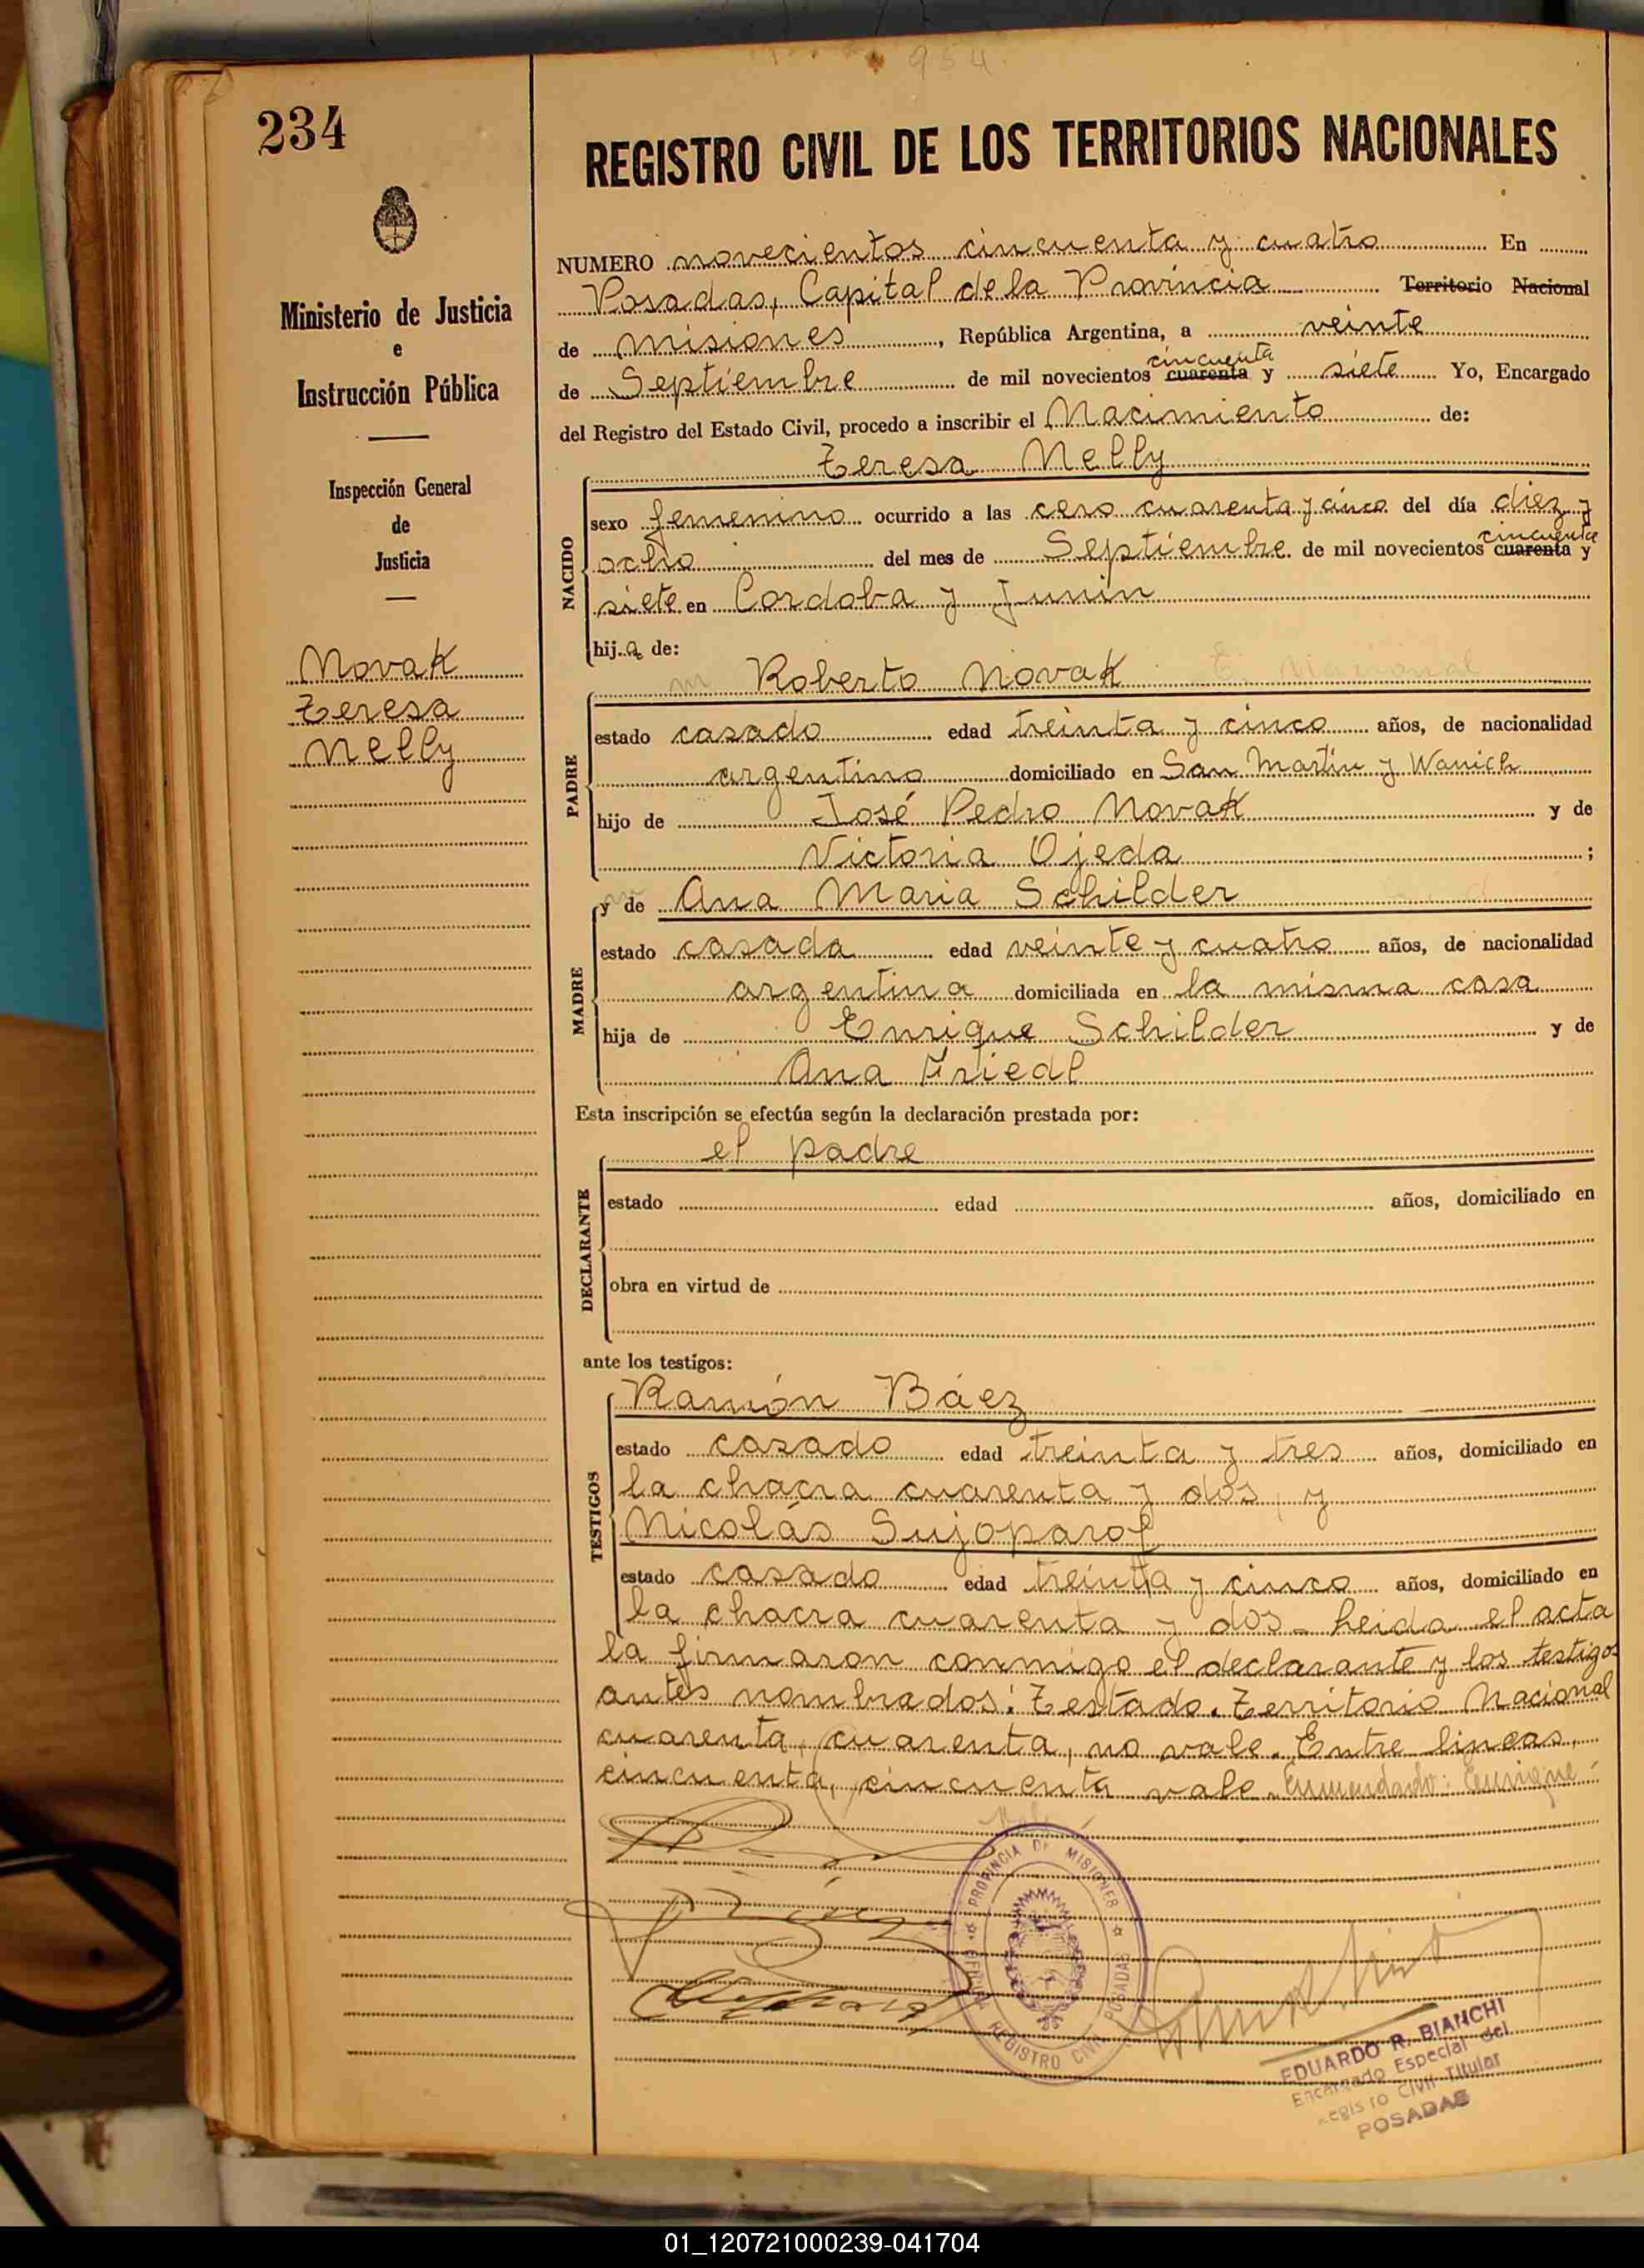 954
234
REGISTRO CIVIL DE LOS TERRITORIOS NACIONALES
Ministerio de Justicia
e
Instrucción Pública
Inspección General
de
Justicia
Novak
Teresa
Nelly
NUMERO novecientos cincuenta y cuatro En
Posadas, Capital de la Provincia Territorio Nacional
de Misiones, República Argentina, a veinte
cincuenta
de Septiembre de mil novecientos cuarenta y siete Yo, Encargado
del Registro del Estado Civil, procedo a inscribir el Nacimiento de:
Teresa Nelly
NACIDO
sexo femenino ocurrido a las cero cuarenta y cinco del día diez y
cincuenta
ocho del mes de Septiembre de mil novecientos cuarenta y
siete en Cordoba y Junin
hij.a de:
Roberto Novak
PADRE
estado casado edad treinta y cinco años, de nacionalidad
argentino domiciliado en San Martin y Wanich
hijo de José Pedro Novak y de
Victoria Ojeda ;
y de Ana Maria Schilder
MADRE
estado casada edad veinte y cuatro años, de nacionalidad
argentina domiciliada en la misma casa
hija de Enrique Schilder y de
Ana Friedl
Esta inscripción se efectúa según la declaración prestada por:
el padre
DECLARANTE
estado edad años, domiciliado en
obra en virtud de
ante los testigos:
Ramón Báez
TESTIGOS
estado casado edad treinta y tres años, domiciliado en
la chacra cuarenta y dos, y
Nicolás Sujoparof
estado casado edad treinta y cinco años, domiciliado en
la chacra cuarenta y dos - Leida el acta
la firmaron conmigo el declarante y los testigos
antes nombrados: Testado. Territorio Nacional
cuarenta, cuarenta, no vale. Entre lineas,
cincuenta, cincuenta vale. Enmendado: Enrique:
PROVINCIA DE MISIONES
REGISTRO CIVIL
POSADAS
EDUARDO R. BIANCHI
Encargado Especial del
Registro Civil Titular
POSADAS
01_120721000239-041704